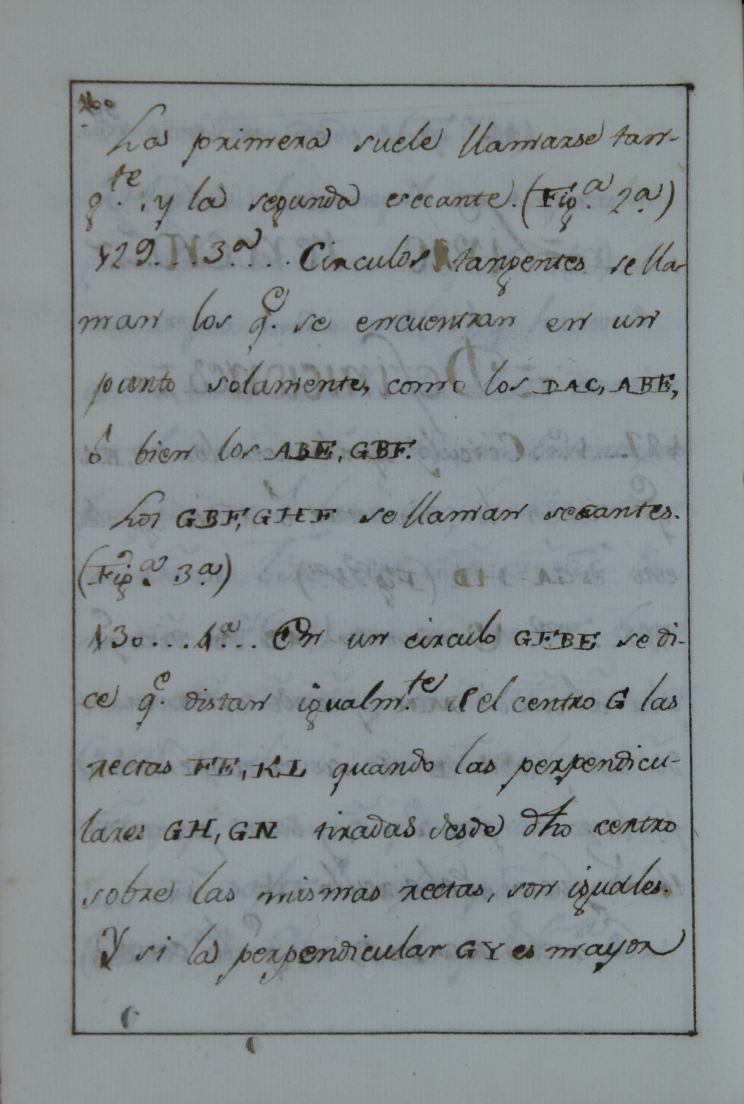 La primera suele llamarse tan-
g.te y la segunda secante. (Fig.a 2.a)
129...3.a... Circulos tangentes se lla-
man los q.e se encuentran en un
punto solamente, como los DAC, ABE,
ó bien los ABE, GBF.
Los GBF, GHF se llaman secantes.
(Fig.a 3.a)
130...4.a... En un circulo GFBE se di-
ce q.e distan igualm.te del centro G las
rectas FE, KL quando las perpendicu-
lares GH, GN tiradas desde dho centro
sobre las mismas rectas, son iguales.
Y si la perpendicular GY es mayor